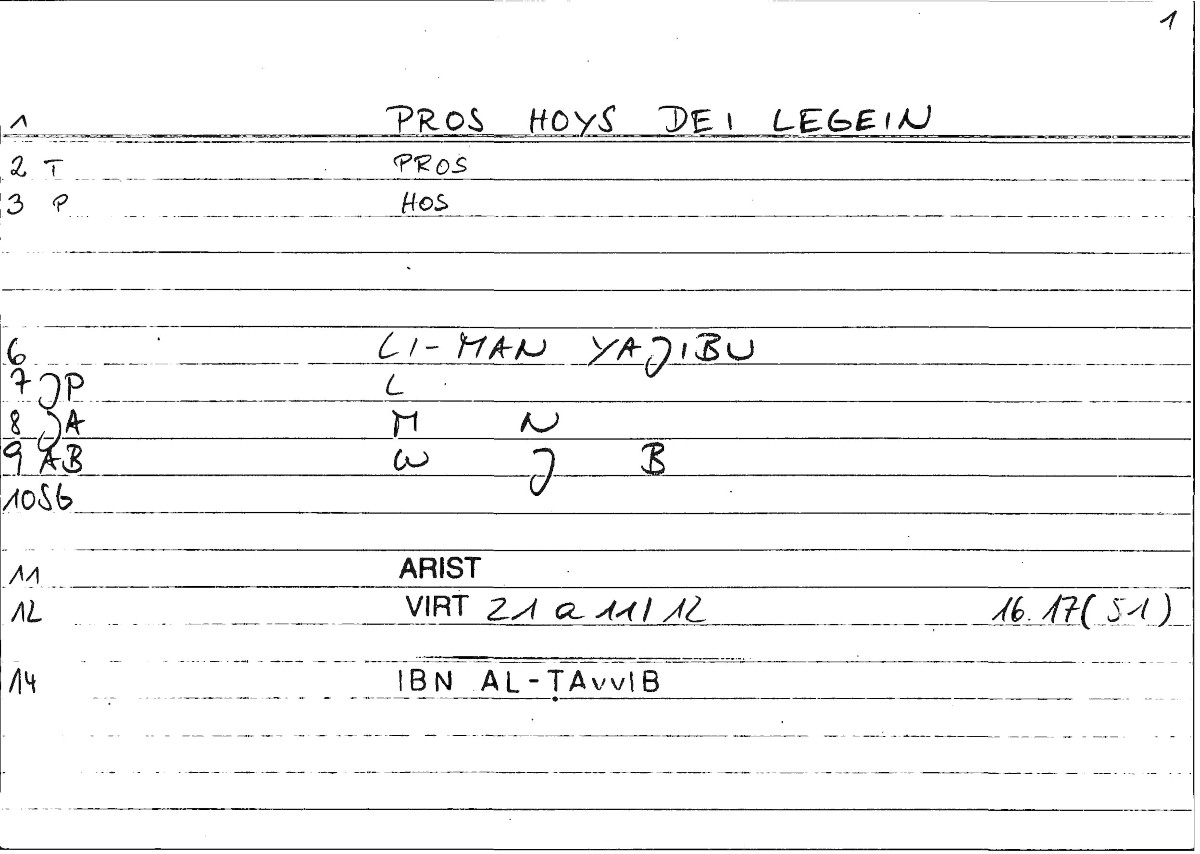 1
1 PROS HOYS DEI LEGEIN
2 T PROS
3 P HOS
6 LI-MAN YAJIBU
7 JP L
8 JA M N
9 AB W J B
10 SG
11 ARIST
12 VIRT 21 a 11/12 16.17(51)
14 IBN AL-ṬAYYIB